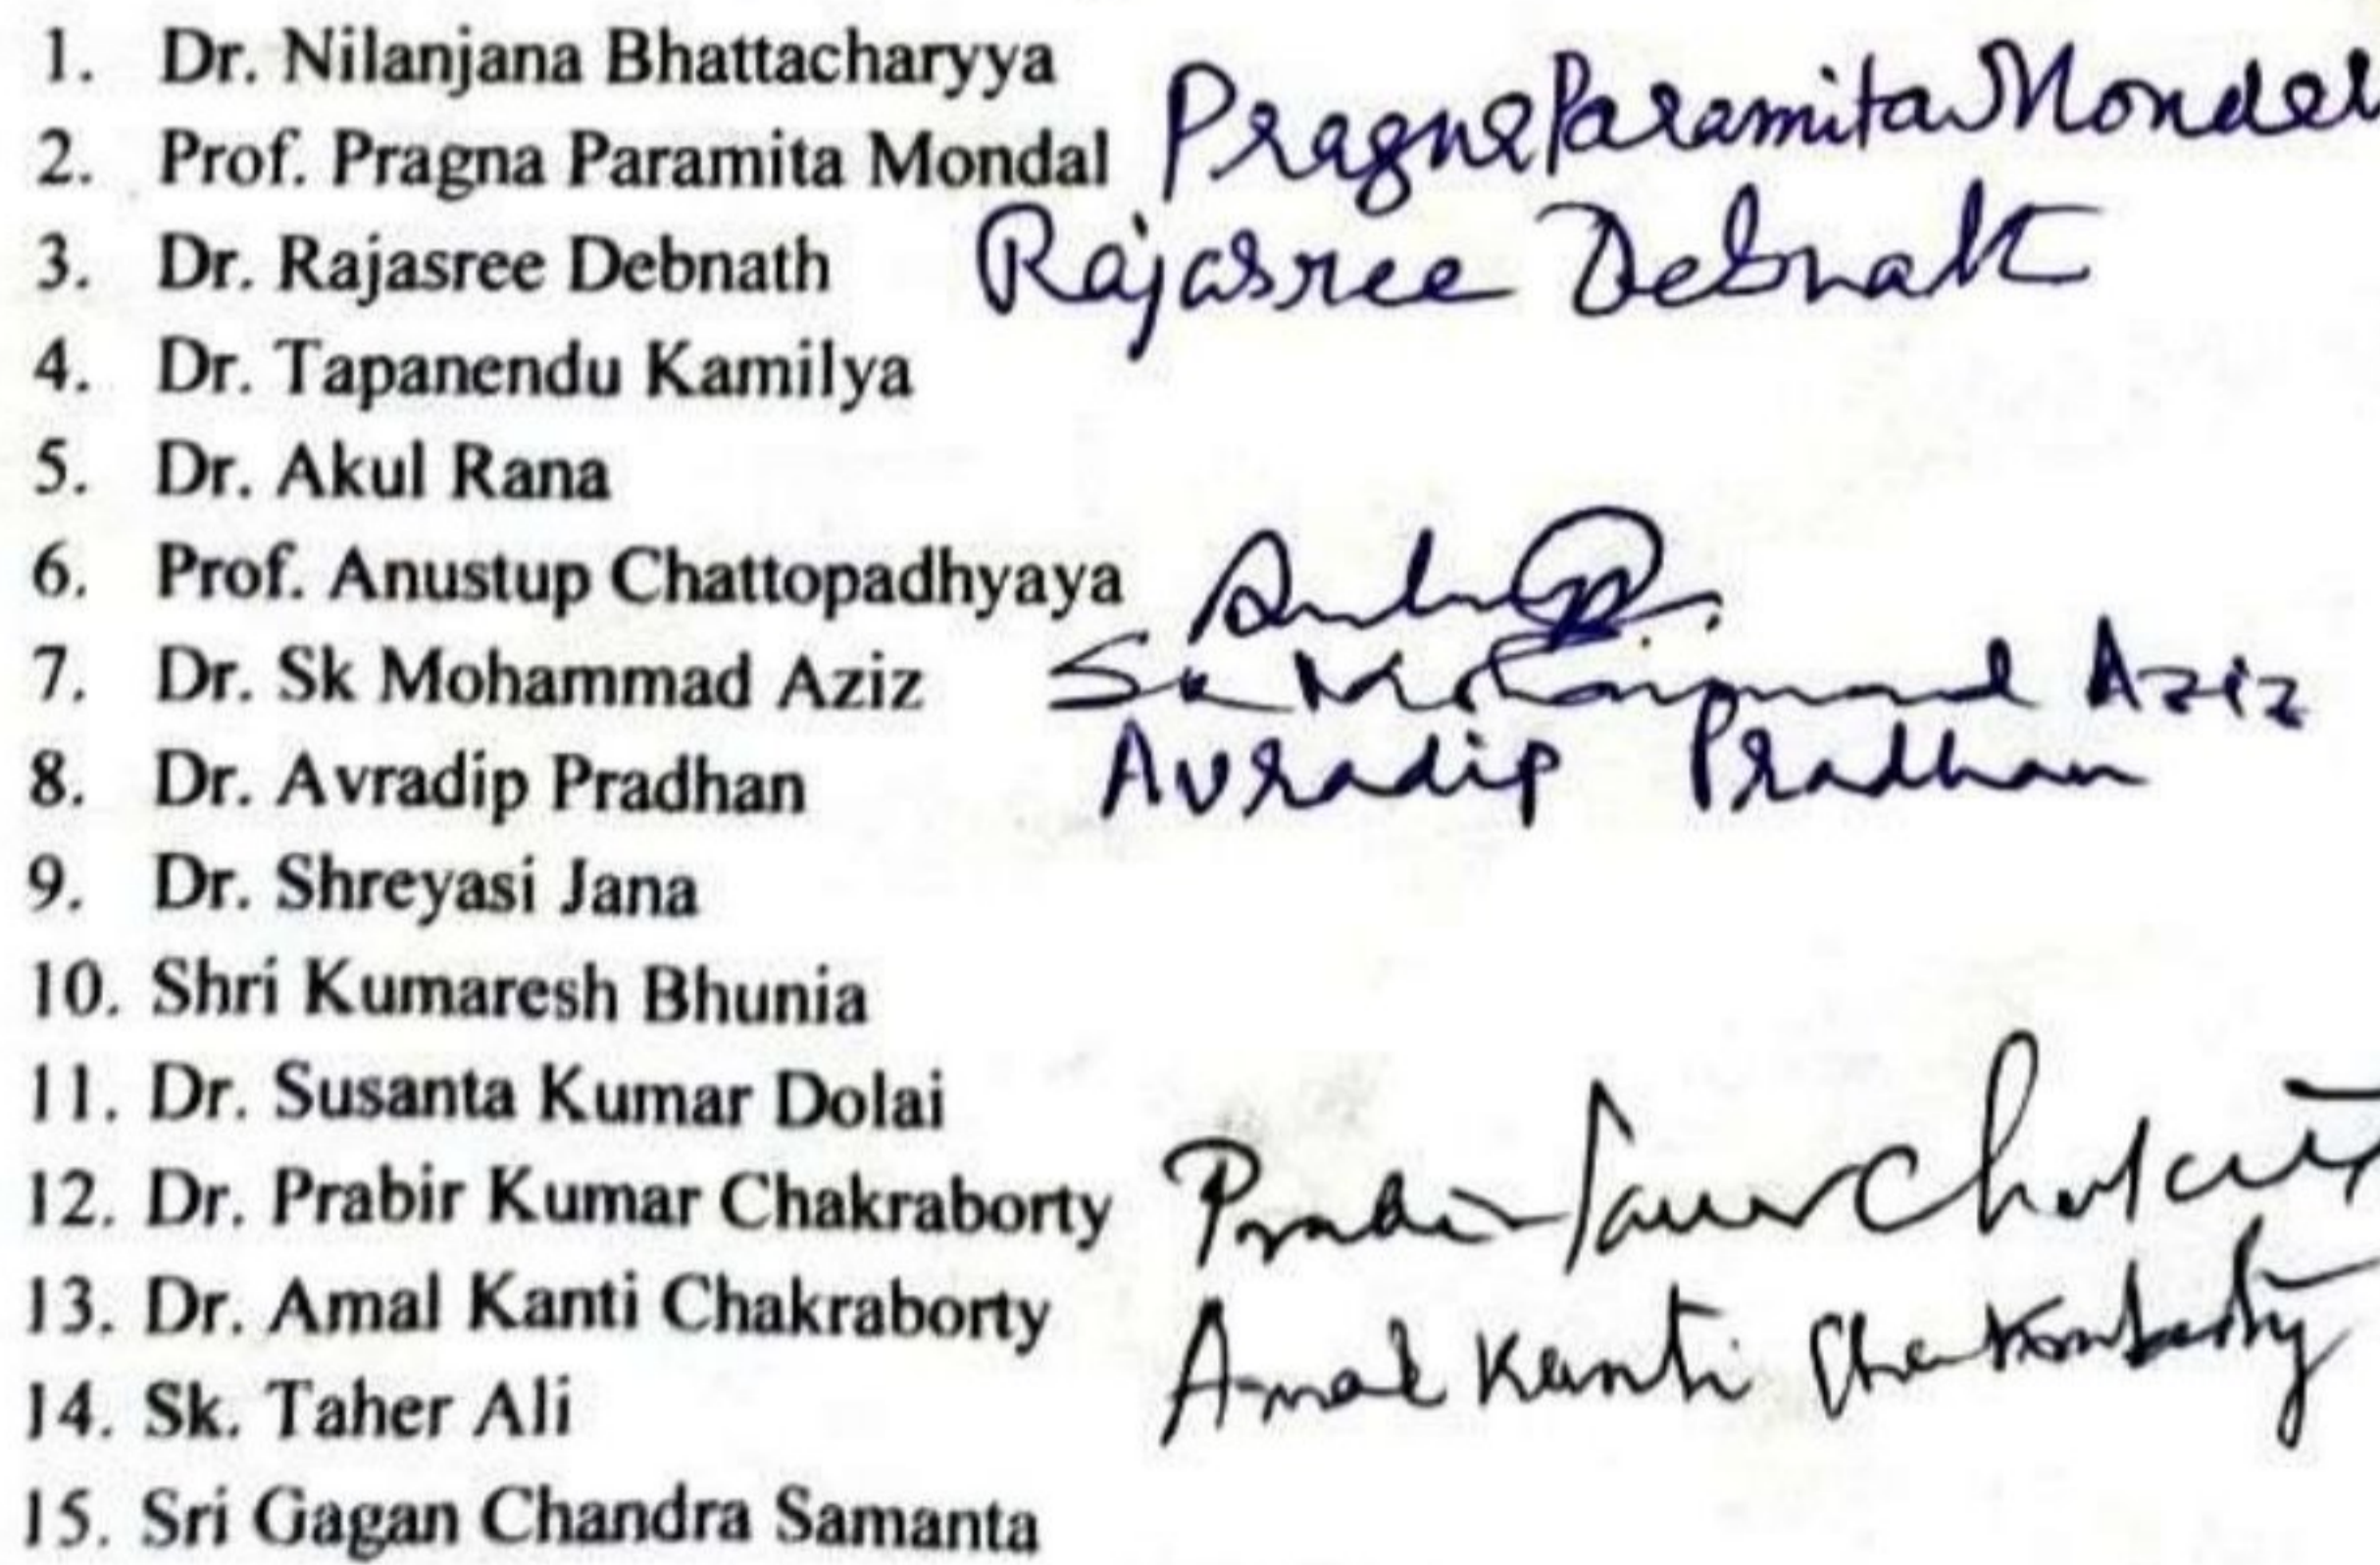 1. Dr. Nilanjana Bhattacharyya
2. Prof. Pragna Paramita Mondal Pragna Paramita Mondal
3. Dr. Rajasree Debnath Rajasree Debnath
4. Dr. Tapanendu Kamilya
5. Dr. Akul Rana
6. Prof. Anustup Chattopadhyaya
7. Dr. Sk Mohammad Aziz Sk Mohammad Aziz
8. Dr. Avradip Pradhan Avradip Pradhan
9. Dr. Shreyasi Jana
10. Shri Kumaresh Bhunia
11. Dr. Susanta Kumar Dolai
12. Dr. Prabir Kumar Chakraborty Prabir Kumar
13. Dr. Amal Kanti Chakraborty Amal Kanti Chakraborty
14. Sk. Taher Ali
15. Sri Gagan Chandra Samanta